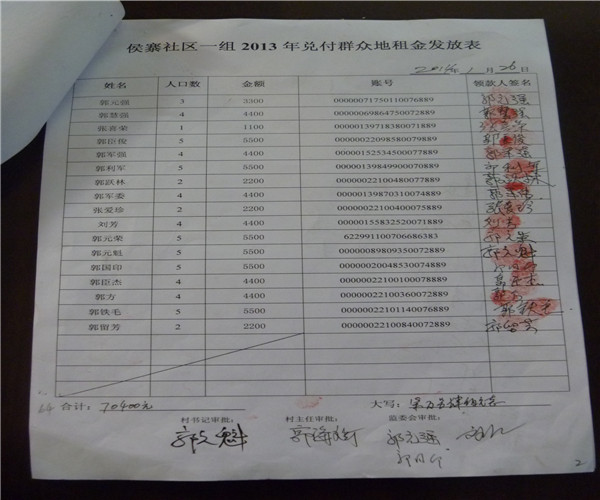 侯寨社区一组 2013 年兑付群众地租金发放表
2014年 1 月 26 日
姓名 人口数 金额 账号 领款人签名
郭元强 3 3300 00000071750110076889 郭元强
郭慧强 4 4400 00000069864750072889
张喜荣 1 1100 00000139718380071889
郭臣俊 5 5500 00000022098580079889
郭军强 4 4400 00000152534500077889
郭利军 5 5500 00000139849900070889 郭利军
郭跃林 2 2200 00000022100480077889
郭军委 4 4400 00000139870310074889
张爱珍 2 2200 00000022100400075889 张爱珍
刘芳 4 4400 00000155832520071889 刘芳
郭元荣 5 5500 622991100706686383 郭元荣
郭元魁 5 5500 00000089809350072889 郭元魁
郭国印 5 5500 00000020048530074889
郭臣杰 4 4400 00000022100100078889 郭臣杰
郭方 4 4400 00000022100360072889
郭铁毛 5 5500 00000022101140076889 郭铁毛
郭留芳 2 2200 00000022100840072889 郭留芳
64 合计： 70400元 大写：
村书记审批： 村主任审批： 监委会审批：
郭元魁 郭海彬 郭元强
郭国印
2